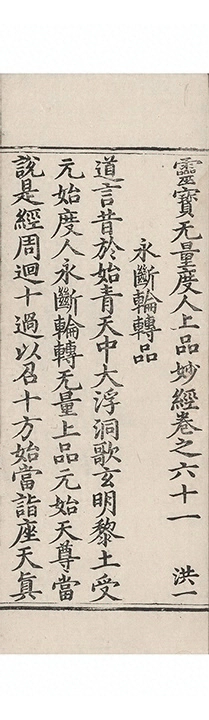 靈寶无量度人上品妙經卷之六十一 洪一
永斷輪轉品
道言昔於始青天中大浮洞歌玄明黎土受
元始度人永斷輪轉无量上品元始天尊當
說是經周迴十過以召十方始當詣座天真